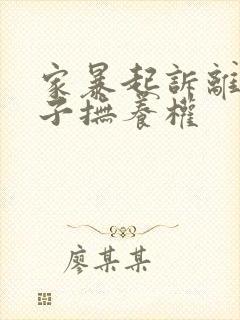 家暴起訴離
子撫養權
廖某某